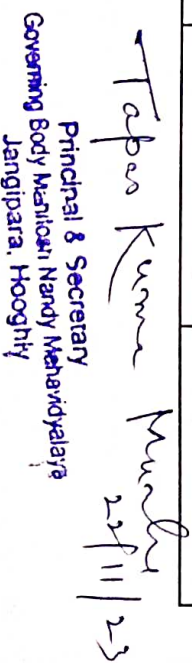 Tapas Kumar
22/11/23
Principal & Secretary
Governing Body Manitosh Nandy Mahavidyalaya
Jangipara, Hooghly